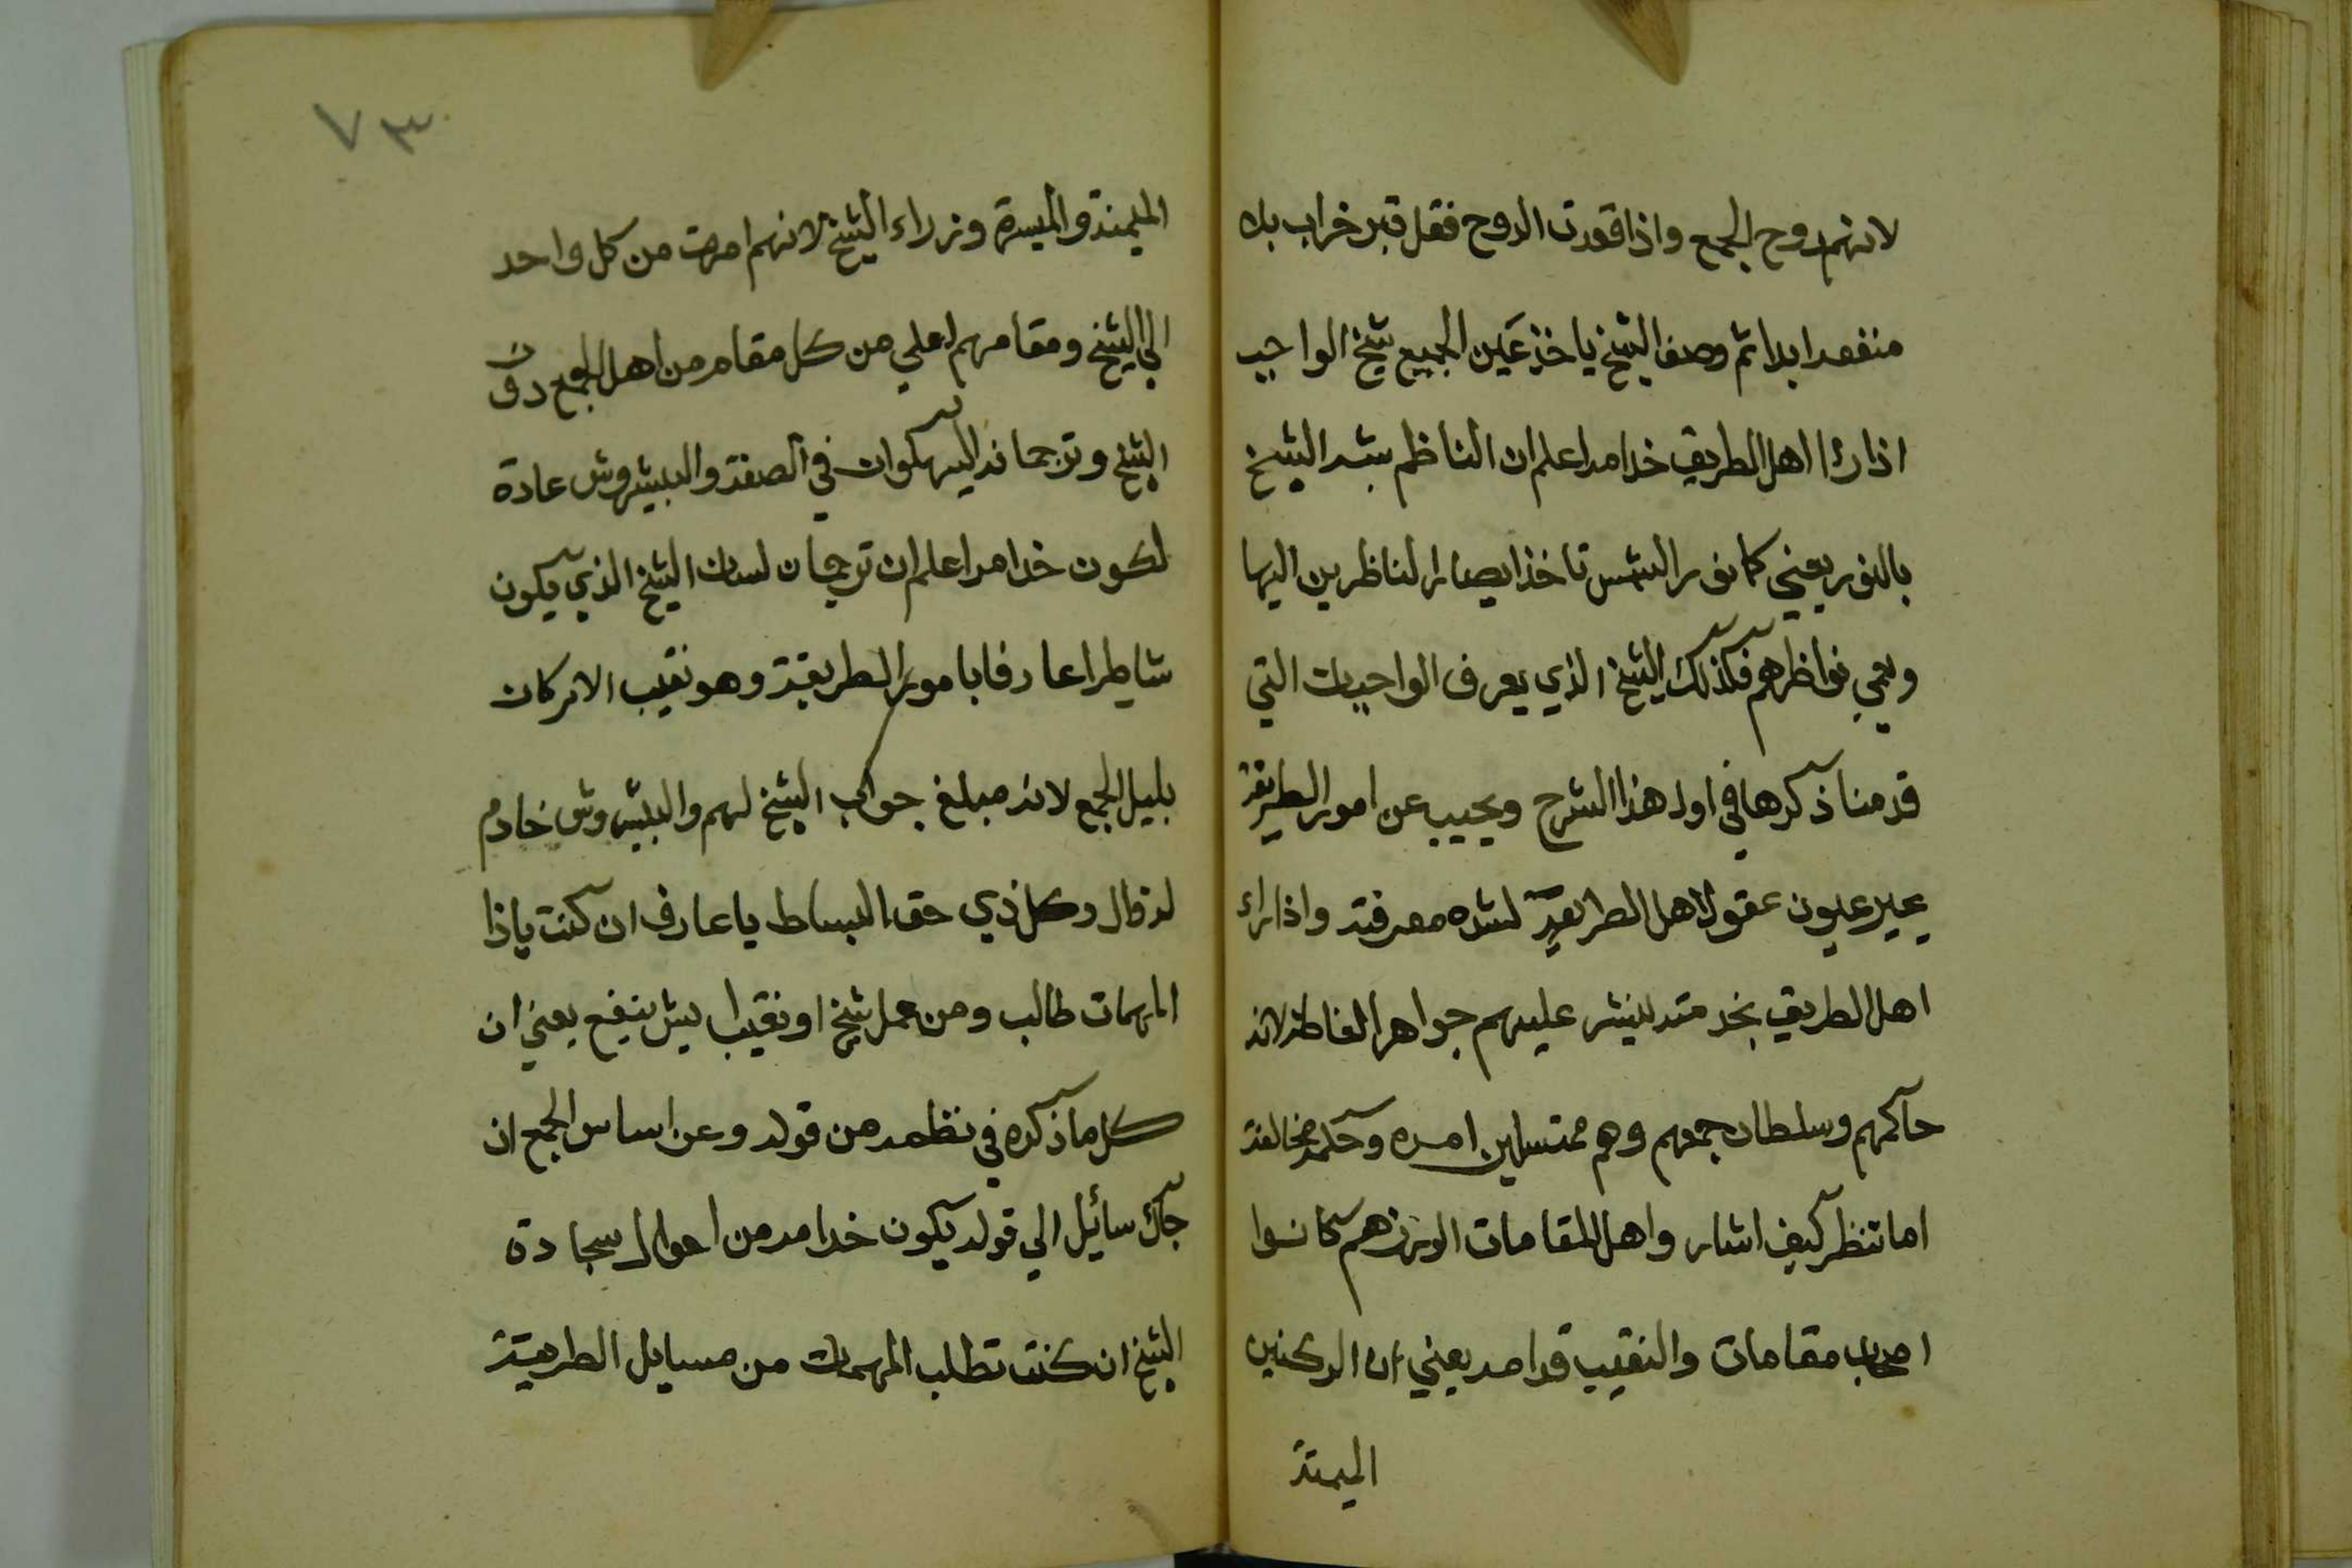 لانهم روح الجمع واذا قودت الروح فقل قبر خراب بلا
منفعه ابدا ثم وصف الشيخ ياخذ عين الجميع شيخ الواجب
اذا رءا اهل الطريق خدامه اعلم ان الناظم شبه الشيخ
بالنور يعني كما نور الشمس تاخذ ابصار الناظرين اليها
وهي نواظرهم فكذلك الشيخ الذي يعرف الواجبات التي
قدمنا ذكرها في اول هذا الشرح ويجيب عن امور الطريقة
يحير عيون عقول اهل الطريقة لشده معرفته واذا راء
اهل الطريق بخدمته لينشر عليهم جواهر الفاظه لانه
حاكمهم وسلطان جمعهم وهم ممتسلين امره وحكمه مخالفة
اما تنظر كيف اشار واهل المقامات الوزر هم كانوا
اصحاب مقامات والنقيب قدامه يعني ان الركنين
الميمنة
٧٣
الميمنة والميسرة وزراء الشيخ لانهم امرت من كل واحد
الي الشيخ ومقامهم اعلي من كل مقام من اهل الجمع دون
الشيخ وترجمانه اليه كوان في الصفة والبيشروش عادة
لكون خدامه اعلم ان ترجمان لسان الشيخ الذي يكون
شاطرا عارفا بامور الطريقة وهو نقيب الاركان
بليل الجمع لانه مبلغ جواب الشيخ لهم والبيشروش خادم
له قال وكل ذي حق البساط يا عارف ان كنت ياذا
المهمات طالب ومن عمل شيخ او نقيب ايش ينفع يعني ان
كل ما ذكره في نظمه من قوله وعن اساس الجمع ان
جاك سائيل الي قوله يكون خدامه من احوال سجادة
الشيخ ان كنت تطلب المهمات من مسايل الطريقة